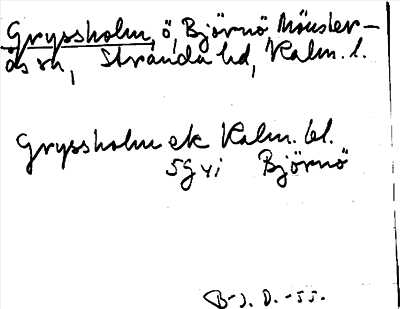 Gryssholm, ö, Björnö Mönster-
ås sn, Stranda hd, Kalm. l.
Gryssholm ek Kalm. bl.
5G vi Björnö
B-J. D. -55.